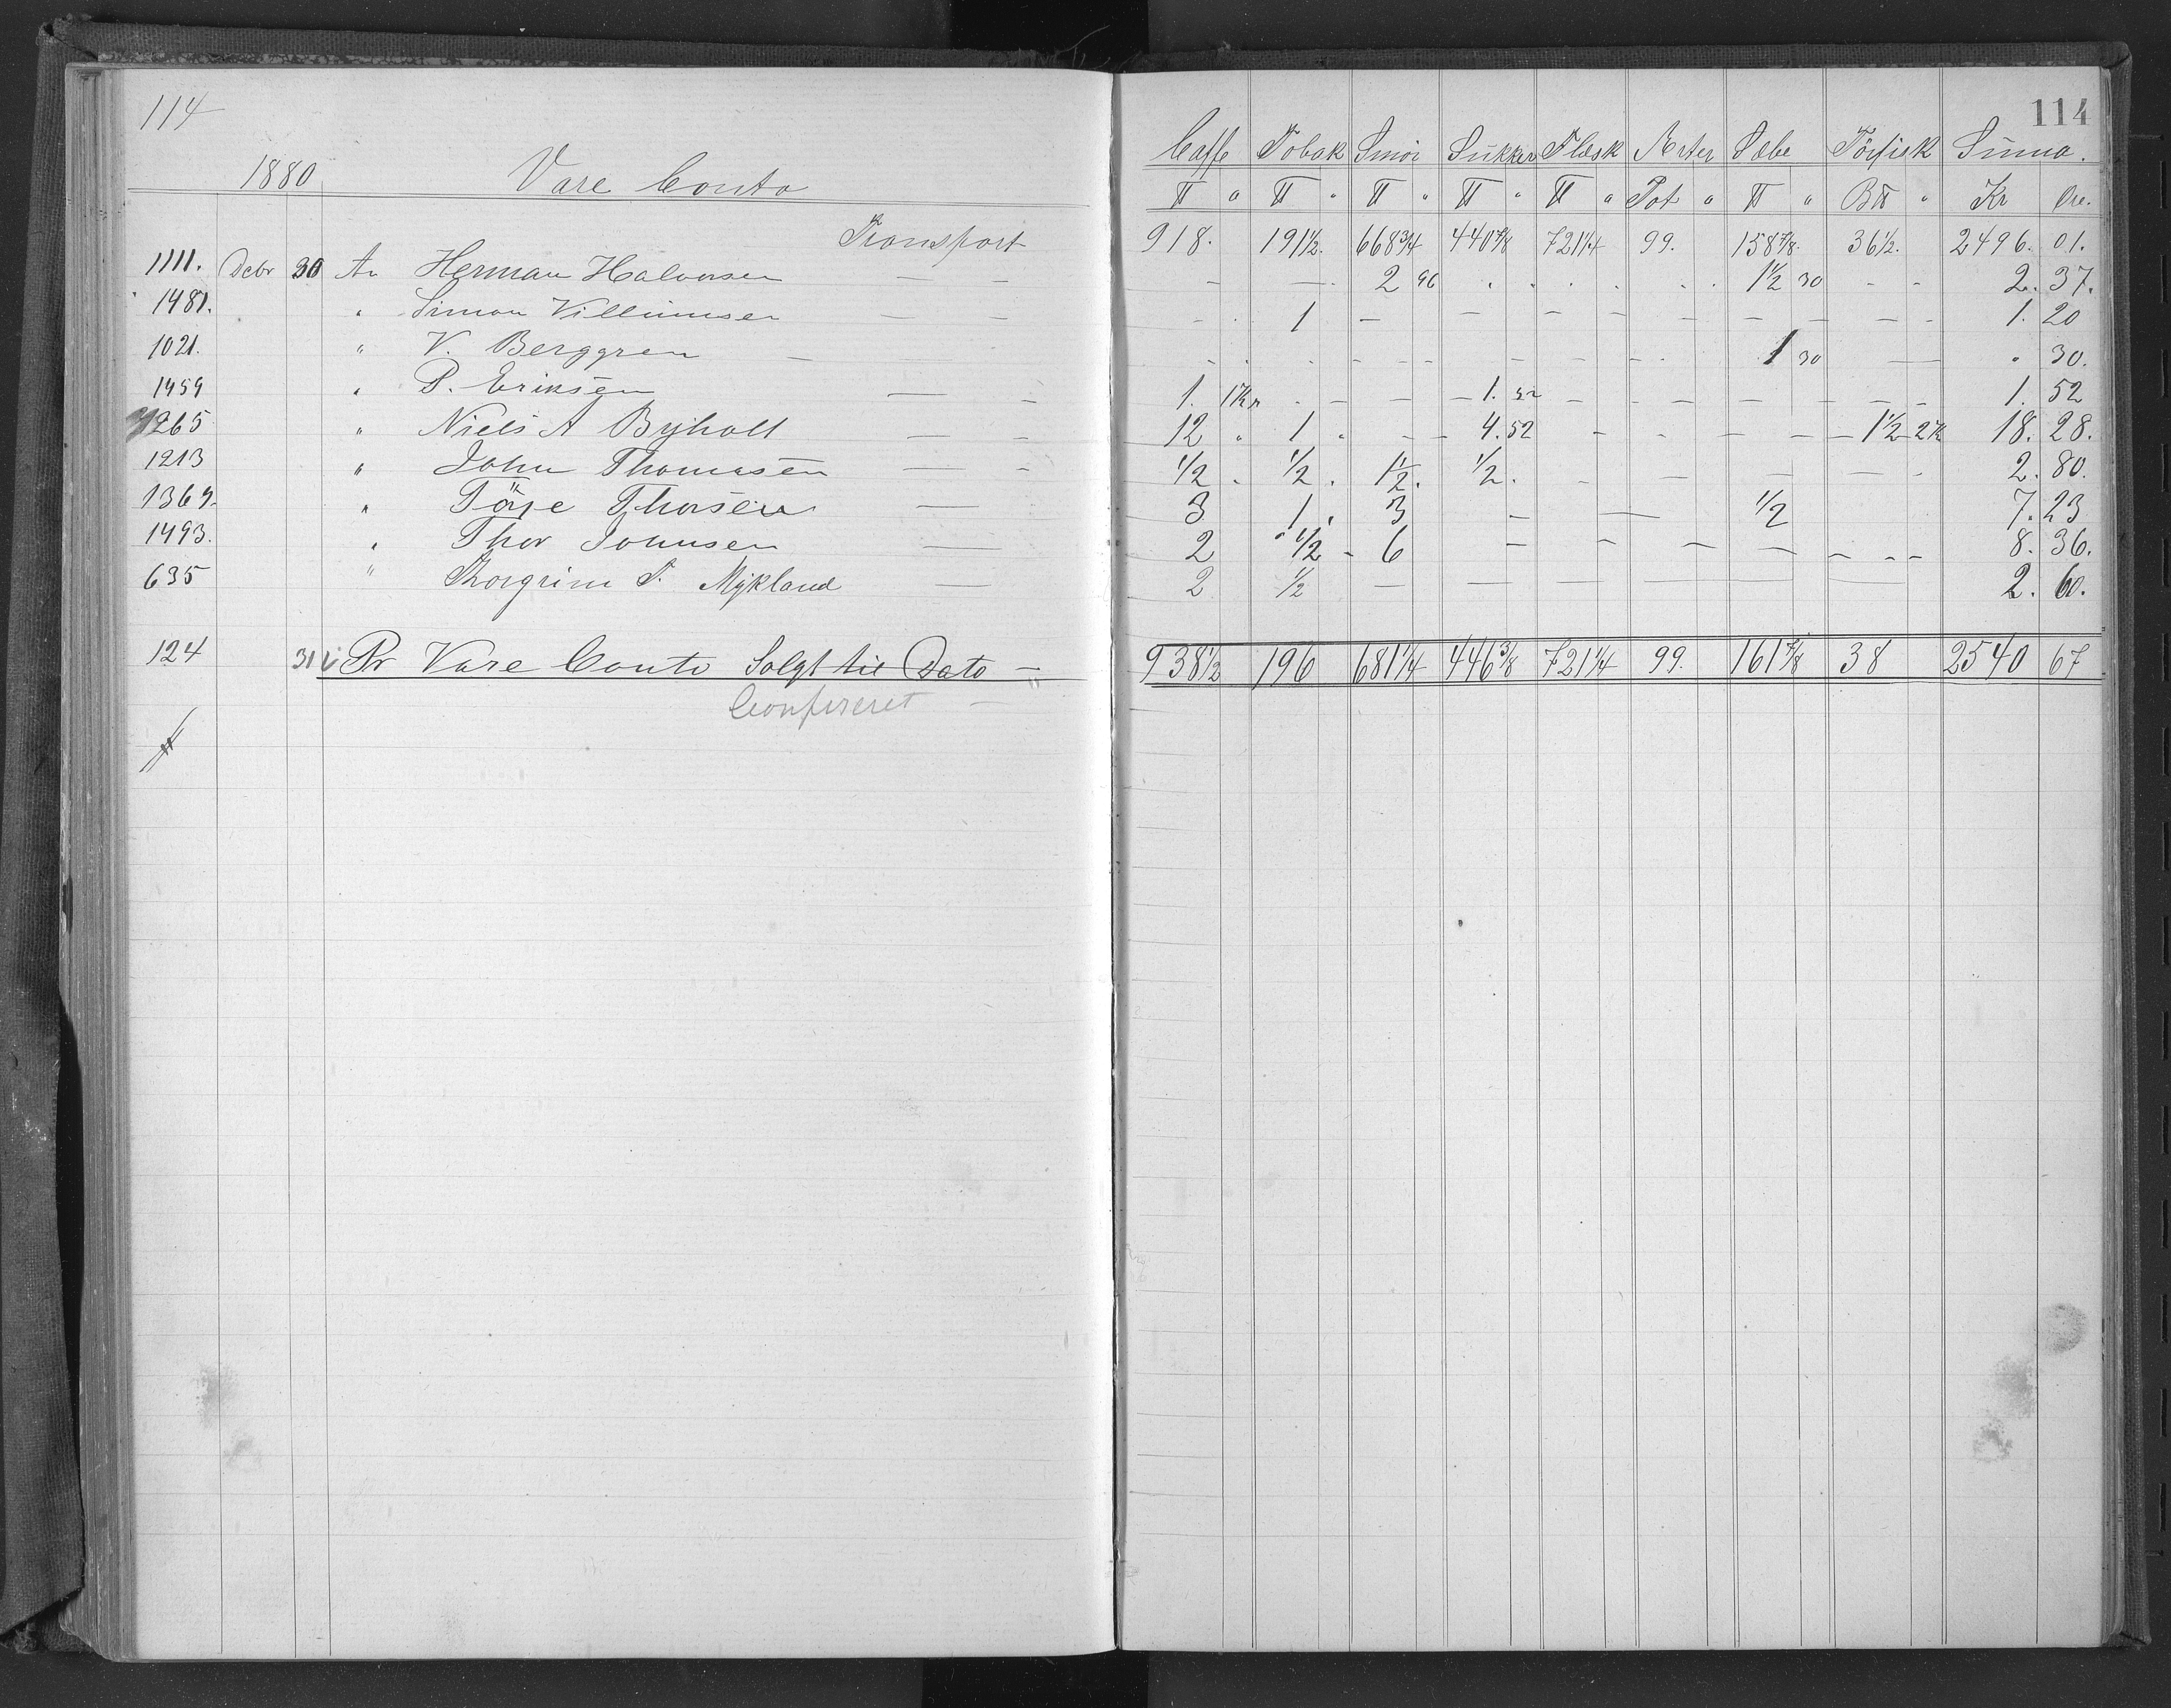 114
1880 Vare Conto
Transport
1111. Debr 30 An Herman Halvorsen — —
1481. " Simon Villumsen — —
1021. " V. Berggren —
1459 " P. Eriksen — —
1265 " Niels A Byholt — —
1213 " John Thomasen — —
1369. " Törje Thorsen —
1493. " Thor Johnsen —
635 " Thorgrim T. Mykland —
124 31 Pr Vare Conto Solgt til Dato —
Confereret —
114
Caffe Tobak Smör Sukker Flæsk Erter Sæbe Törfisk Suma.
℔ " ℔ " ℔ " ℔ " ℔ " Pot " ℔ " B℔ " Kr Öre.
918. 191½. 668¾ 440⅞ 721¼ 99. 158⅞. 36½. 2496. 01.
2 96 1½ 30 2. 37.
1 1. 20
1 30 " 30.
1. 1Kr 1. 52 1. 52
12 " 1 " 4. 52 1½ 2Kr 18. 28.
½ ½ 1½. ½. 2. 80.
3 1 3 ½ 7. 23
2 ½ 6 8. 36.
2 ½ 2. 60.
938½ 196 681¼ 446⅜ 721¼ 99. 161⅞ 38 2540 67